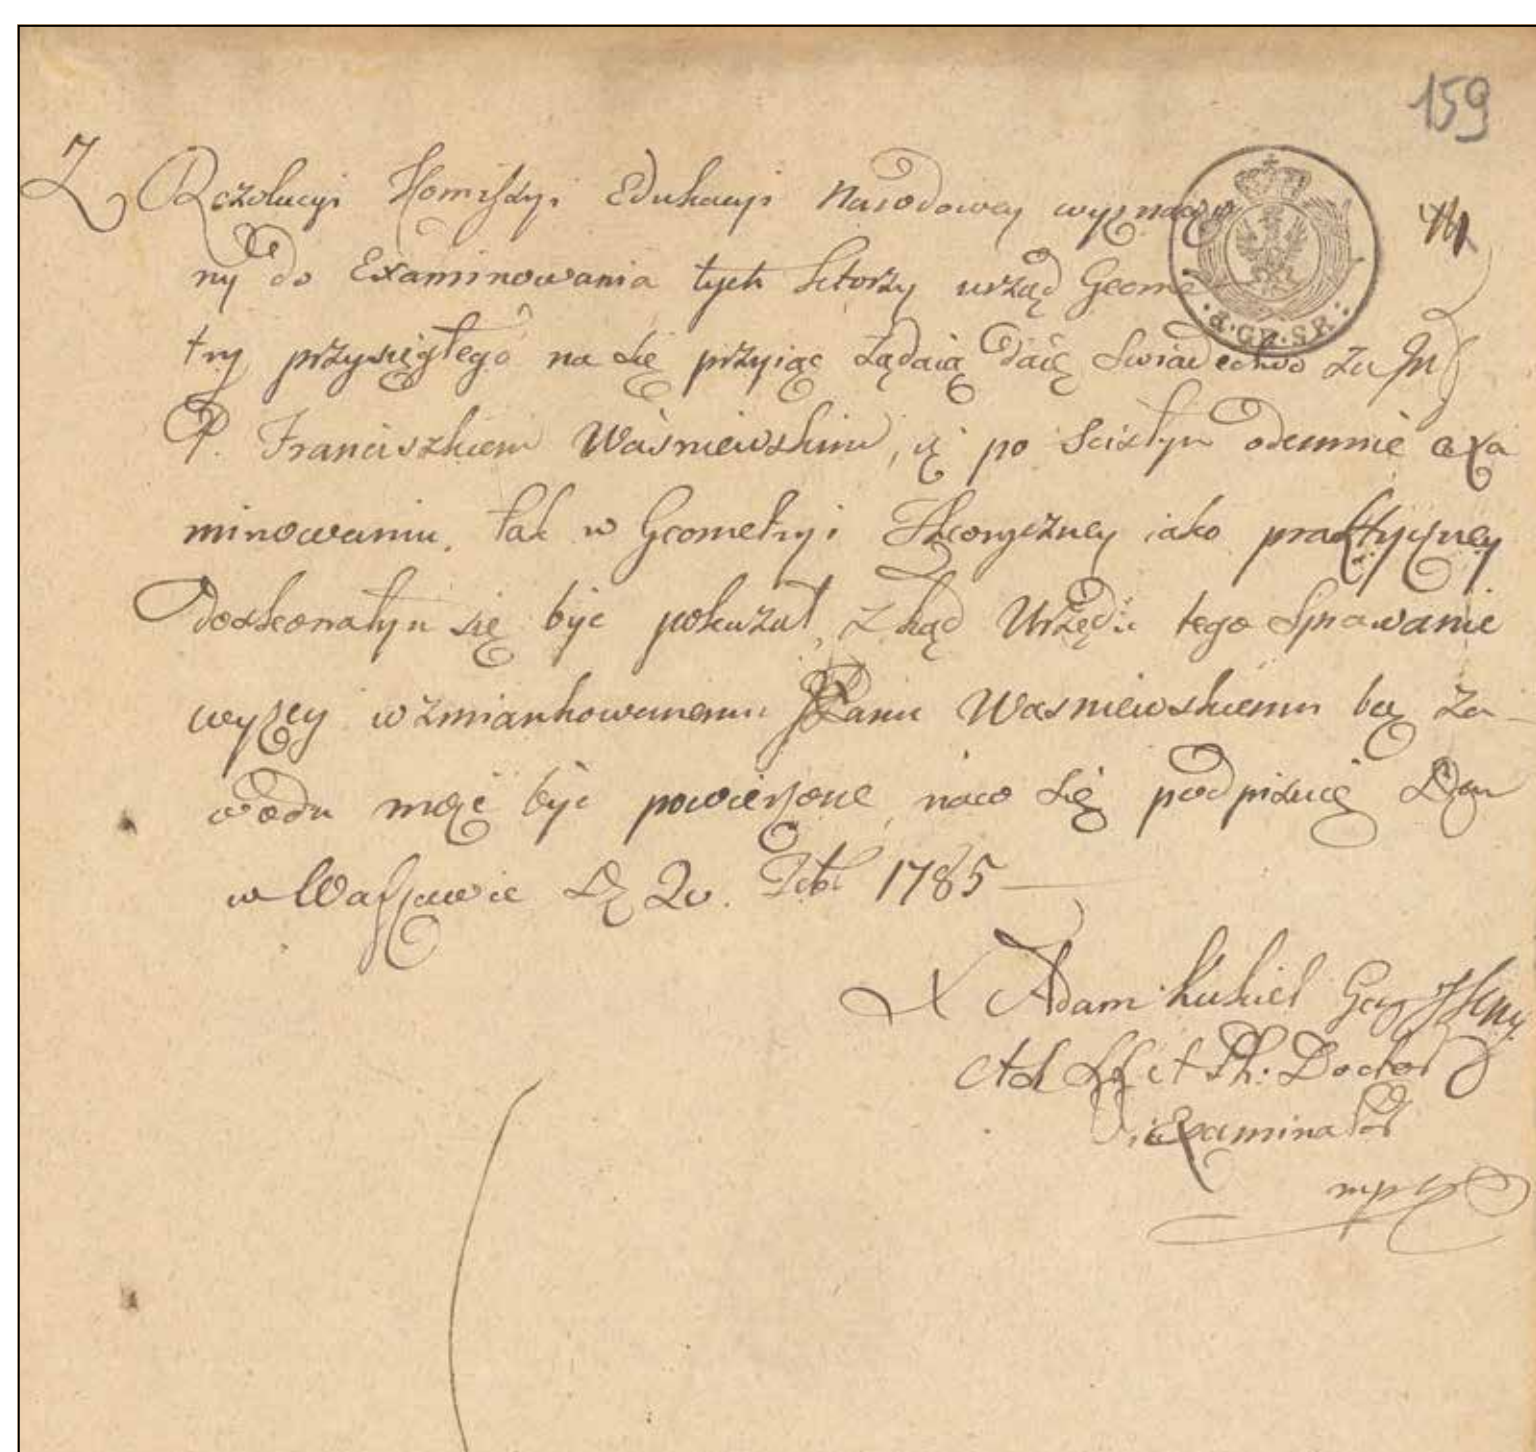 159
Z Rezolucyi Kommissyi Edukacyi Narodowey wyznaczo
ny do Examinowania tych ktorzy urząd Geome
try przysięgłego na się przyiąć żądaią daię Swiadectwo za
P. Franciszkiem Waśniewskim, iż po scisłym odemnie exa
minowaniu, tak w Geometryi Teoryczney iako praktyczney
doskonałym się być pokazał, z kąd Urzędu tego Sprawanie
wyżey wzmiankowanemu JPanu Wasniewskiemu bez za-
wodu może być powierzone, naco się podpisuię Dan
w Warszawie D 20. 1785
4. GR. SR.
X Adam Kukiel
et Ph: Doctor
Examinator
mp